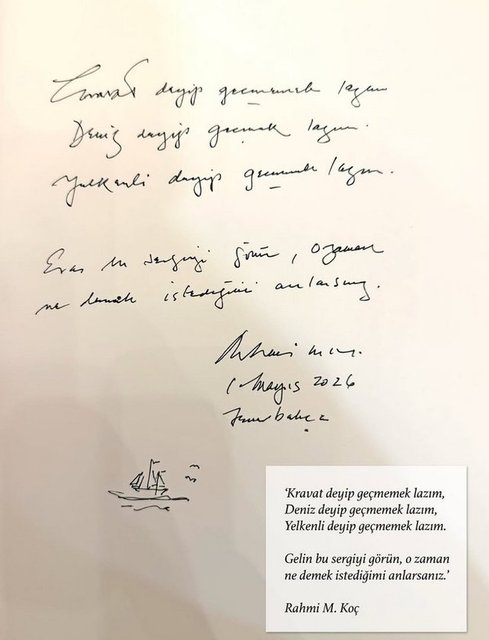 Kravat deyip geçmemek lazım
Deniz deyip geçmek lazım.
Yelkenli deyip geçmemek lazım.
bu sergiyi görün, o zaman
ne demek istediğimi anlarsınız.
Rahmi M. Koç.
1 Mayıs 2026
Fenerbahçe
‘Kravat deyip geçmemek lazım,
Deniz deyip geçmemek lazım,
Yelkenli deyip geçmemek lazım.
Gelin bu sergiyi görün, o zaman
ne demek istediğimi anlarsanız.’
Rahmi M. Koç